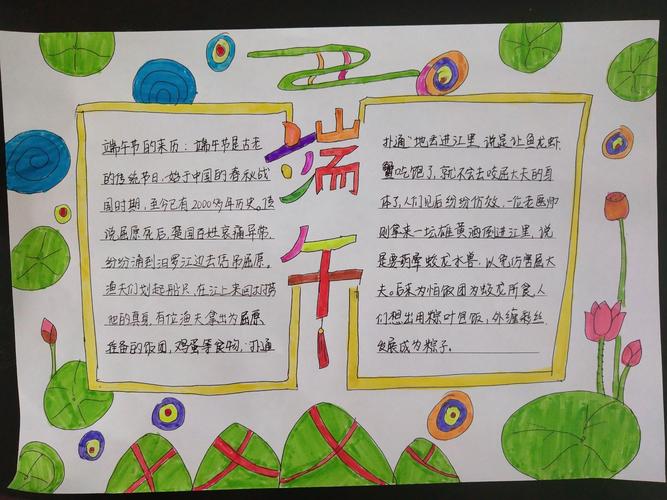 端午
端午节的来历：端午节是古老
的传统节日，始于中国的春秋战
国时期，至今已有2000多年历史。传
说屈原死后，楚国百姓哀痛异常，
纷纷涌到汨罗江边去凭吊屈原。
渔夫们划起船只，在江上来回打捞
他的真身。有位渔夫拿出为屈原
准备的饭团，鸡蛋等食物，“扑通
扑通”地丢进江里，说是让鱼龙虾
蟹吃饱了，就不会去咬屈大夫的身
体了，人们见后纷纷仿效，一位老医师
则拿来一坛雄黄酒倒进江里，说
是要药晕蛟龙水兽，以免伤害屈大
夫。后来为怕饭团为蛟龙所食，人
们想出用粽叶包饭，外缠彩丝，
发展成为粽子。